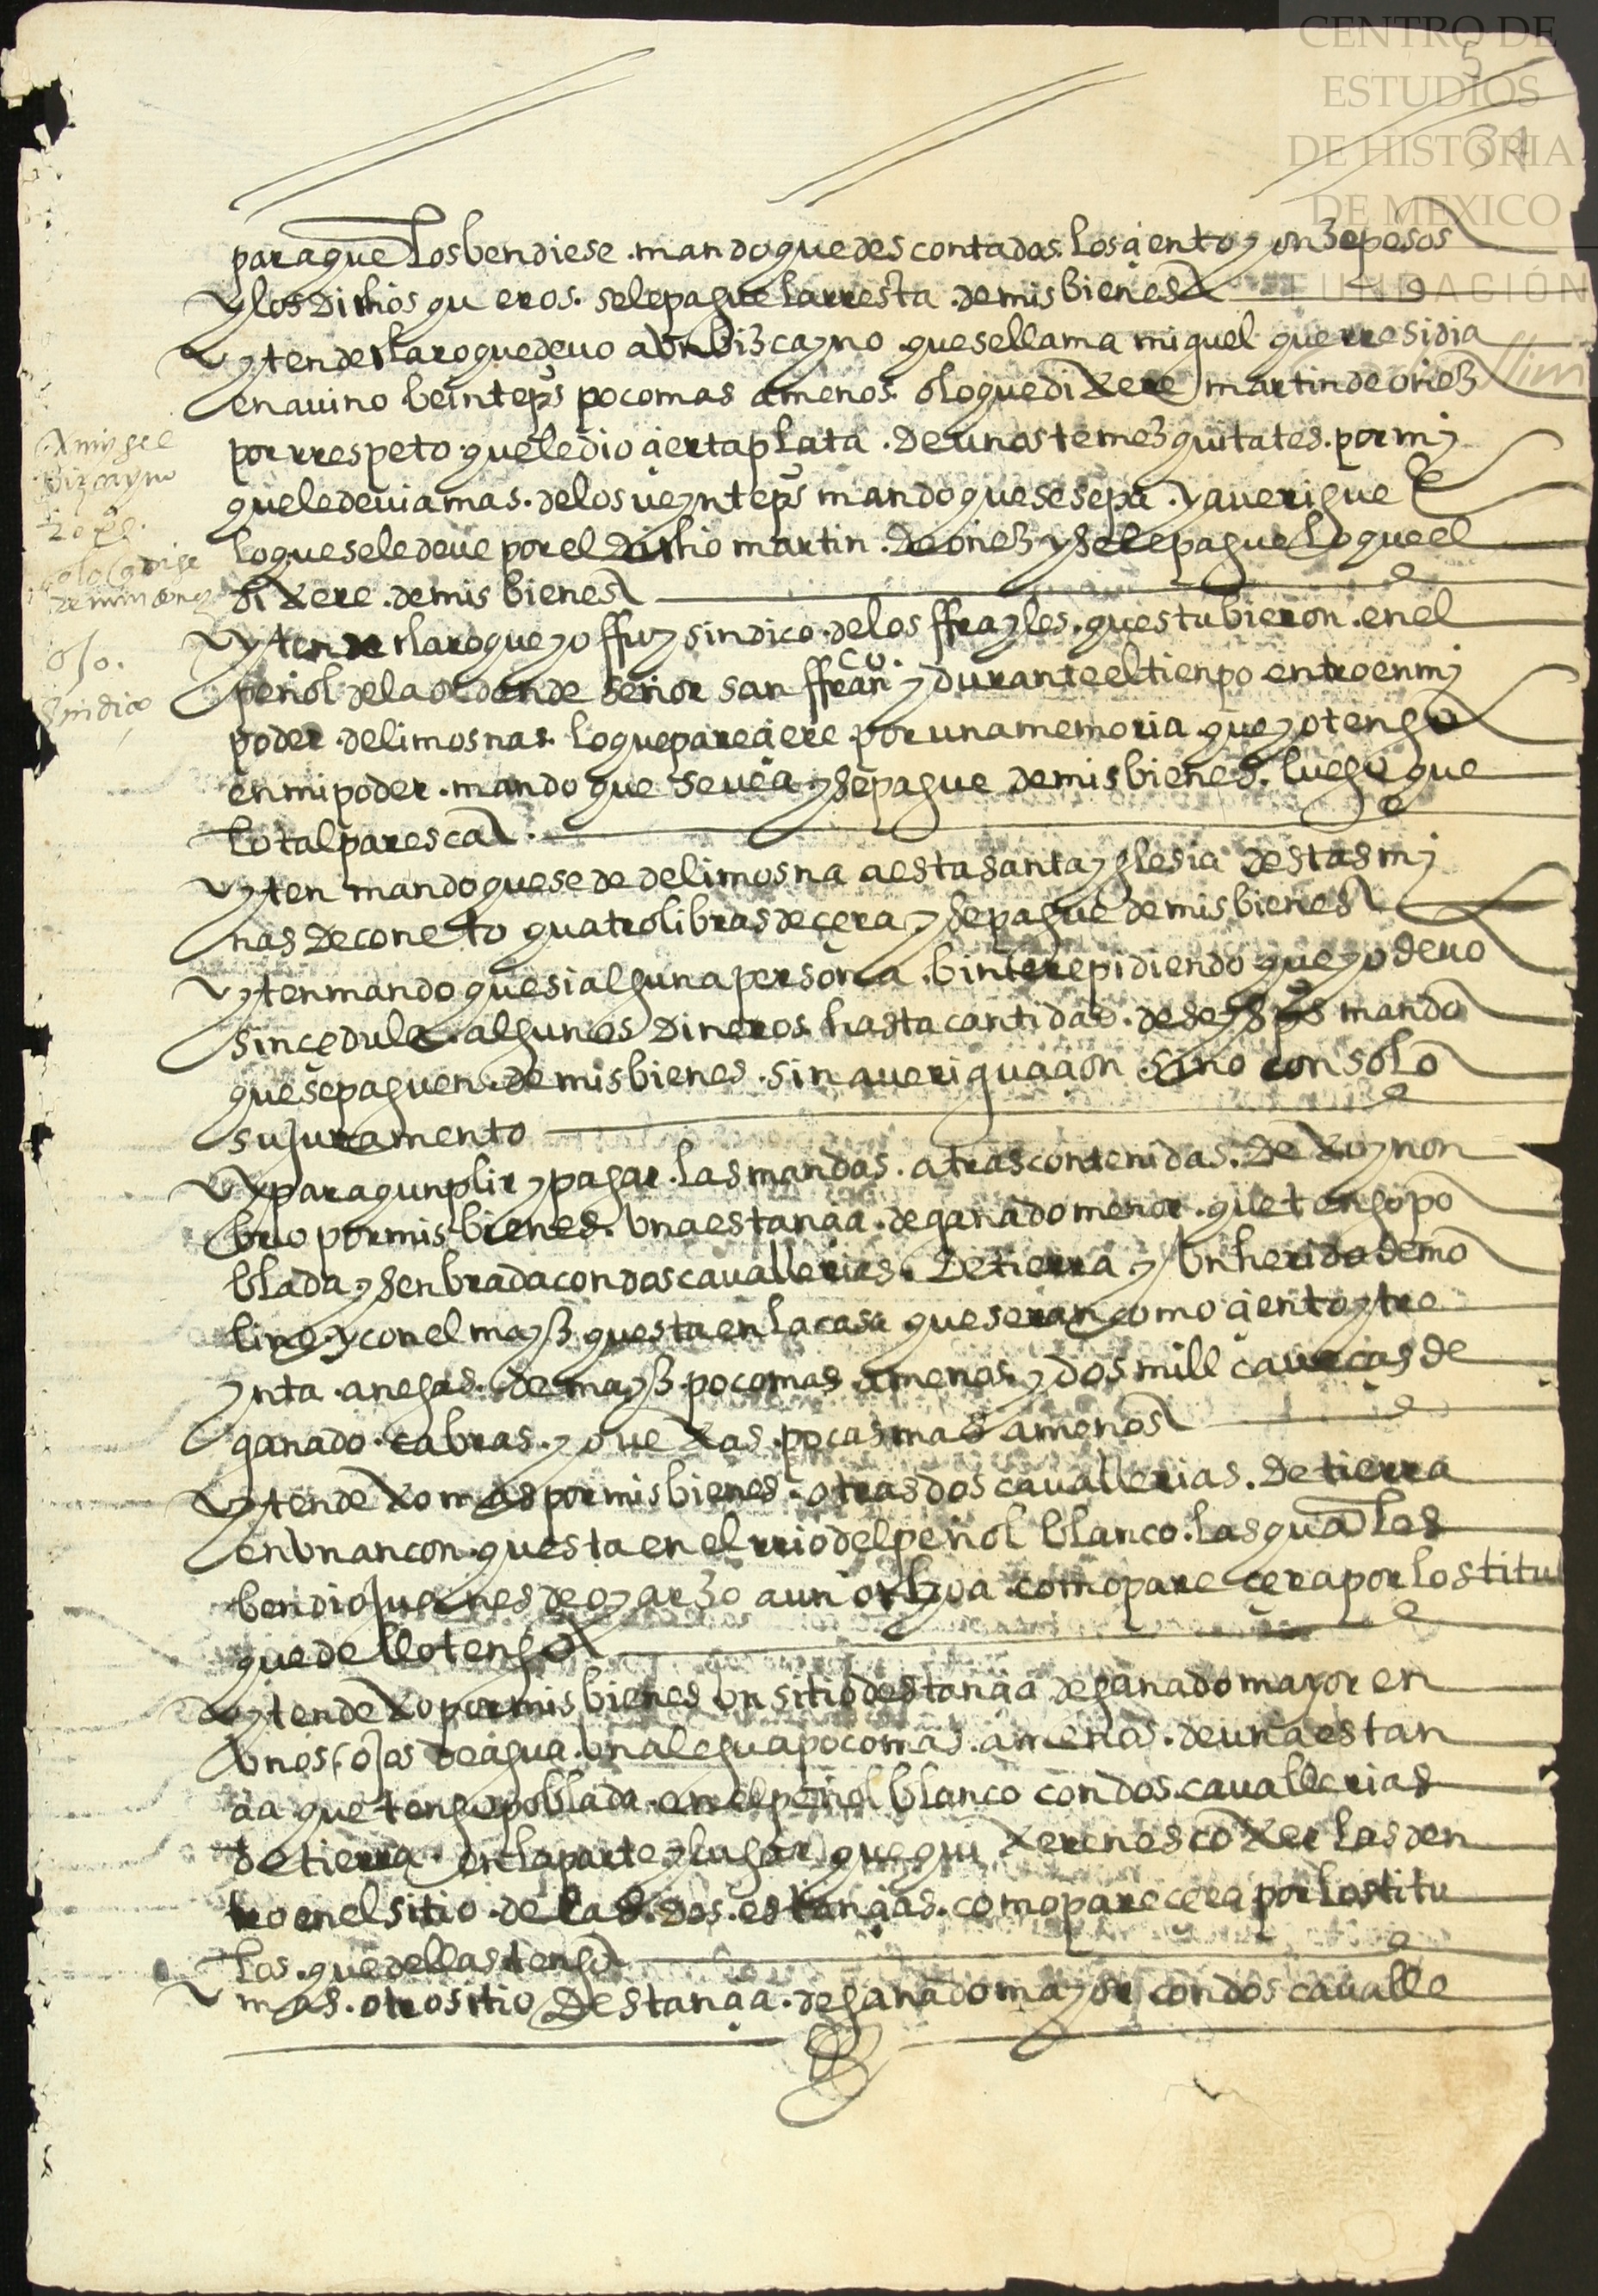 CENTRO DE
ESTUDIOS
DE HISTORIA
DE MEXICO
FUNDACIÓN
5
34
para que los bendiese . mando que descontados los çiento y onze pesos
y los dichos qu eros . se le pague la rresta . de mis bienes
yten declaro que devo a un bizcayno que se llama miguel que rresidia
en avino beinte ps poco mas a menos o lo que dixere martin de oñez
por rrespeto que le dio çierta plata . de unos temezquitates . por mj
que le devia mas . de los veynte ps mando que se sepa . y averigue
lo que se le deve por el dicho martin . de oñez y se le pague lo que el
dixere . de mis bienes
yten declaro que yo ffuy sindico . de los ffrayles . questubieron . en el
peñol de la orden de señor san ffranco y durante el tienpo entro en mj
poder . de limosnas lo que pareçiere . por una memoria . que yo tengo
en mi poder . mando que se vea y se pague de mis bienes . luego que
lo tal paresca .
yten mando que se de de limosna a esta santa yglesia destas mj
nas de coneto quatro libras de çera y se pague de mis bienes
yten mando que si alguna persona . biniere pidiendo que yo devo
sin çedula . algunos dineros hasta cantidad . de seys ps mando
que se paguen . de mis bienes . sin averiguaçion . sino con solo
su juramento
y para qunplir y pagar . las mandas . atras contenidas . dexo y non
bro por mis bienes . una estançia . de ganado menor . que tengo po
blada y senbrada con dos cavallerias . de tierra y un herido de mo
lino . y con el mayz questa en la casa que seran como çiento y tre
ynta . anegas . de mayz . poco mas a menos . y dos mill caveças de
ganado . cabras . y ovexas . pocas mas a menos
yten dexo mas por mis bienes . otras dos cavallerias . de tierra
en un ancon . questa en el rrio del peñol blanco . las quales
bendio juanes de oyarzo a un orbyoa . como pareçera por los titul
que dello tengo
yten dexo por mis bienes un sitio destançia de ganado mayor en
unos ojos de agua . una legua poco mas . a menos . de una estan
çia que tengo poblada . en el peñol blanco con dos cavallerias
de tierra . en la parte y lugar que quixeren escoxerlas den
tro en el sitio . de las . dos . estançias . como pareçera por los titu
los . que dellas tengo
mas . otro sitio destançia . de ganado mayor con dos cavalle
A miguel
bizcayno
20 ps
o lo q dixe
ojo .
sindico